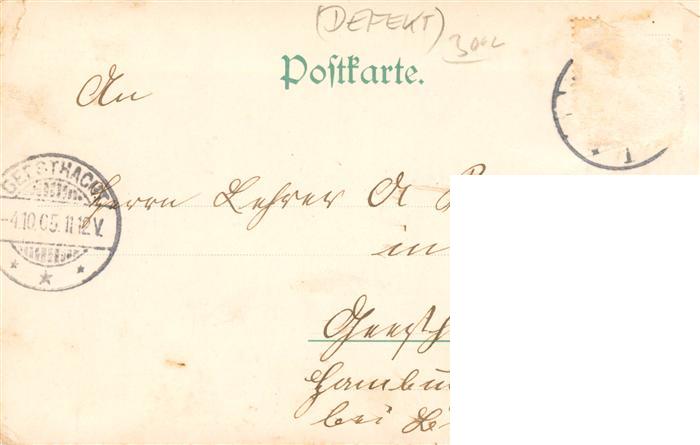 (DEFEKT)
Postkarte.
An
GEESTHACHT
4.10.05.11-12.V.
Herrn Lehrer
in
Geesth
Hambu
bei